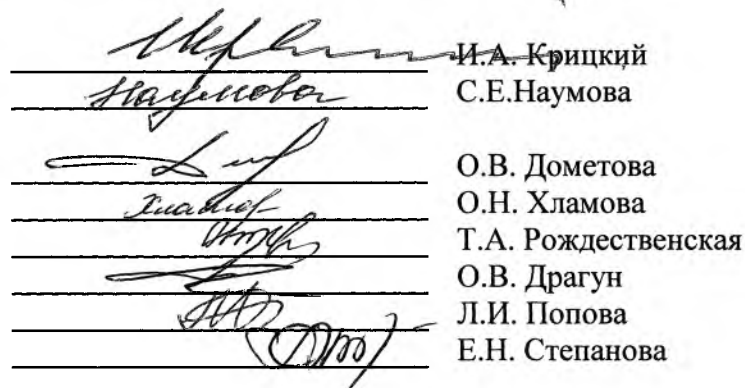 И.А. Крицкий
Наумова С.Е.Наумова
О.В. Дометова
Хламов О.Н. Хламова
Т.А. Рождественская
О.В. Драгун
Л.И. Попова
Е.Н. Степанова